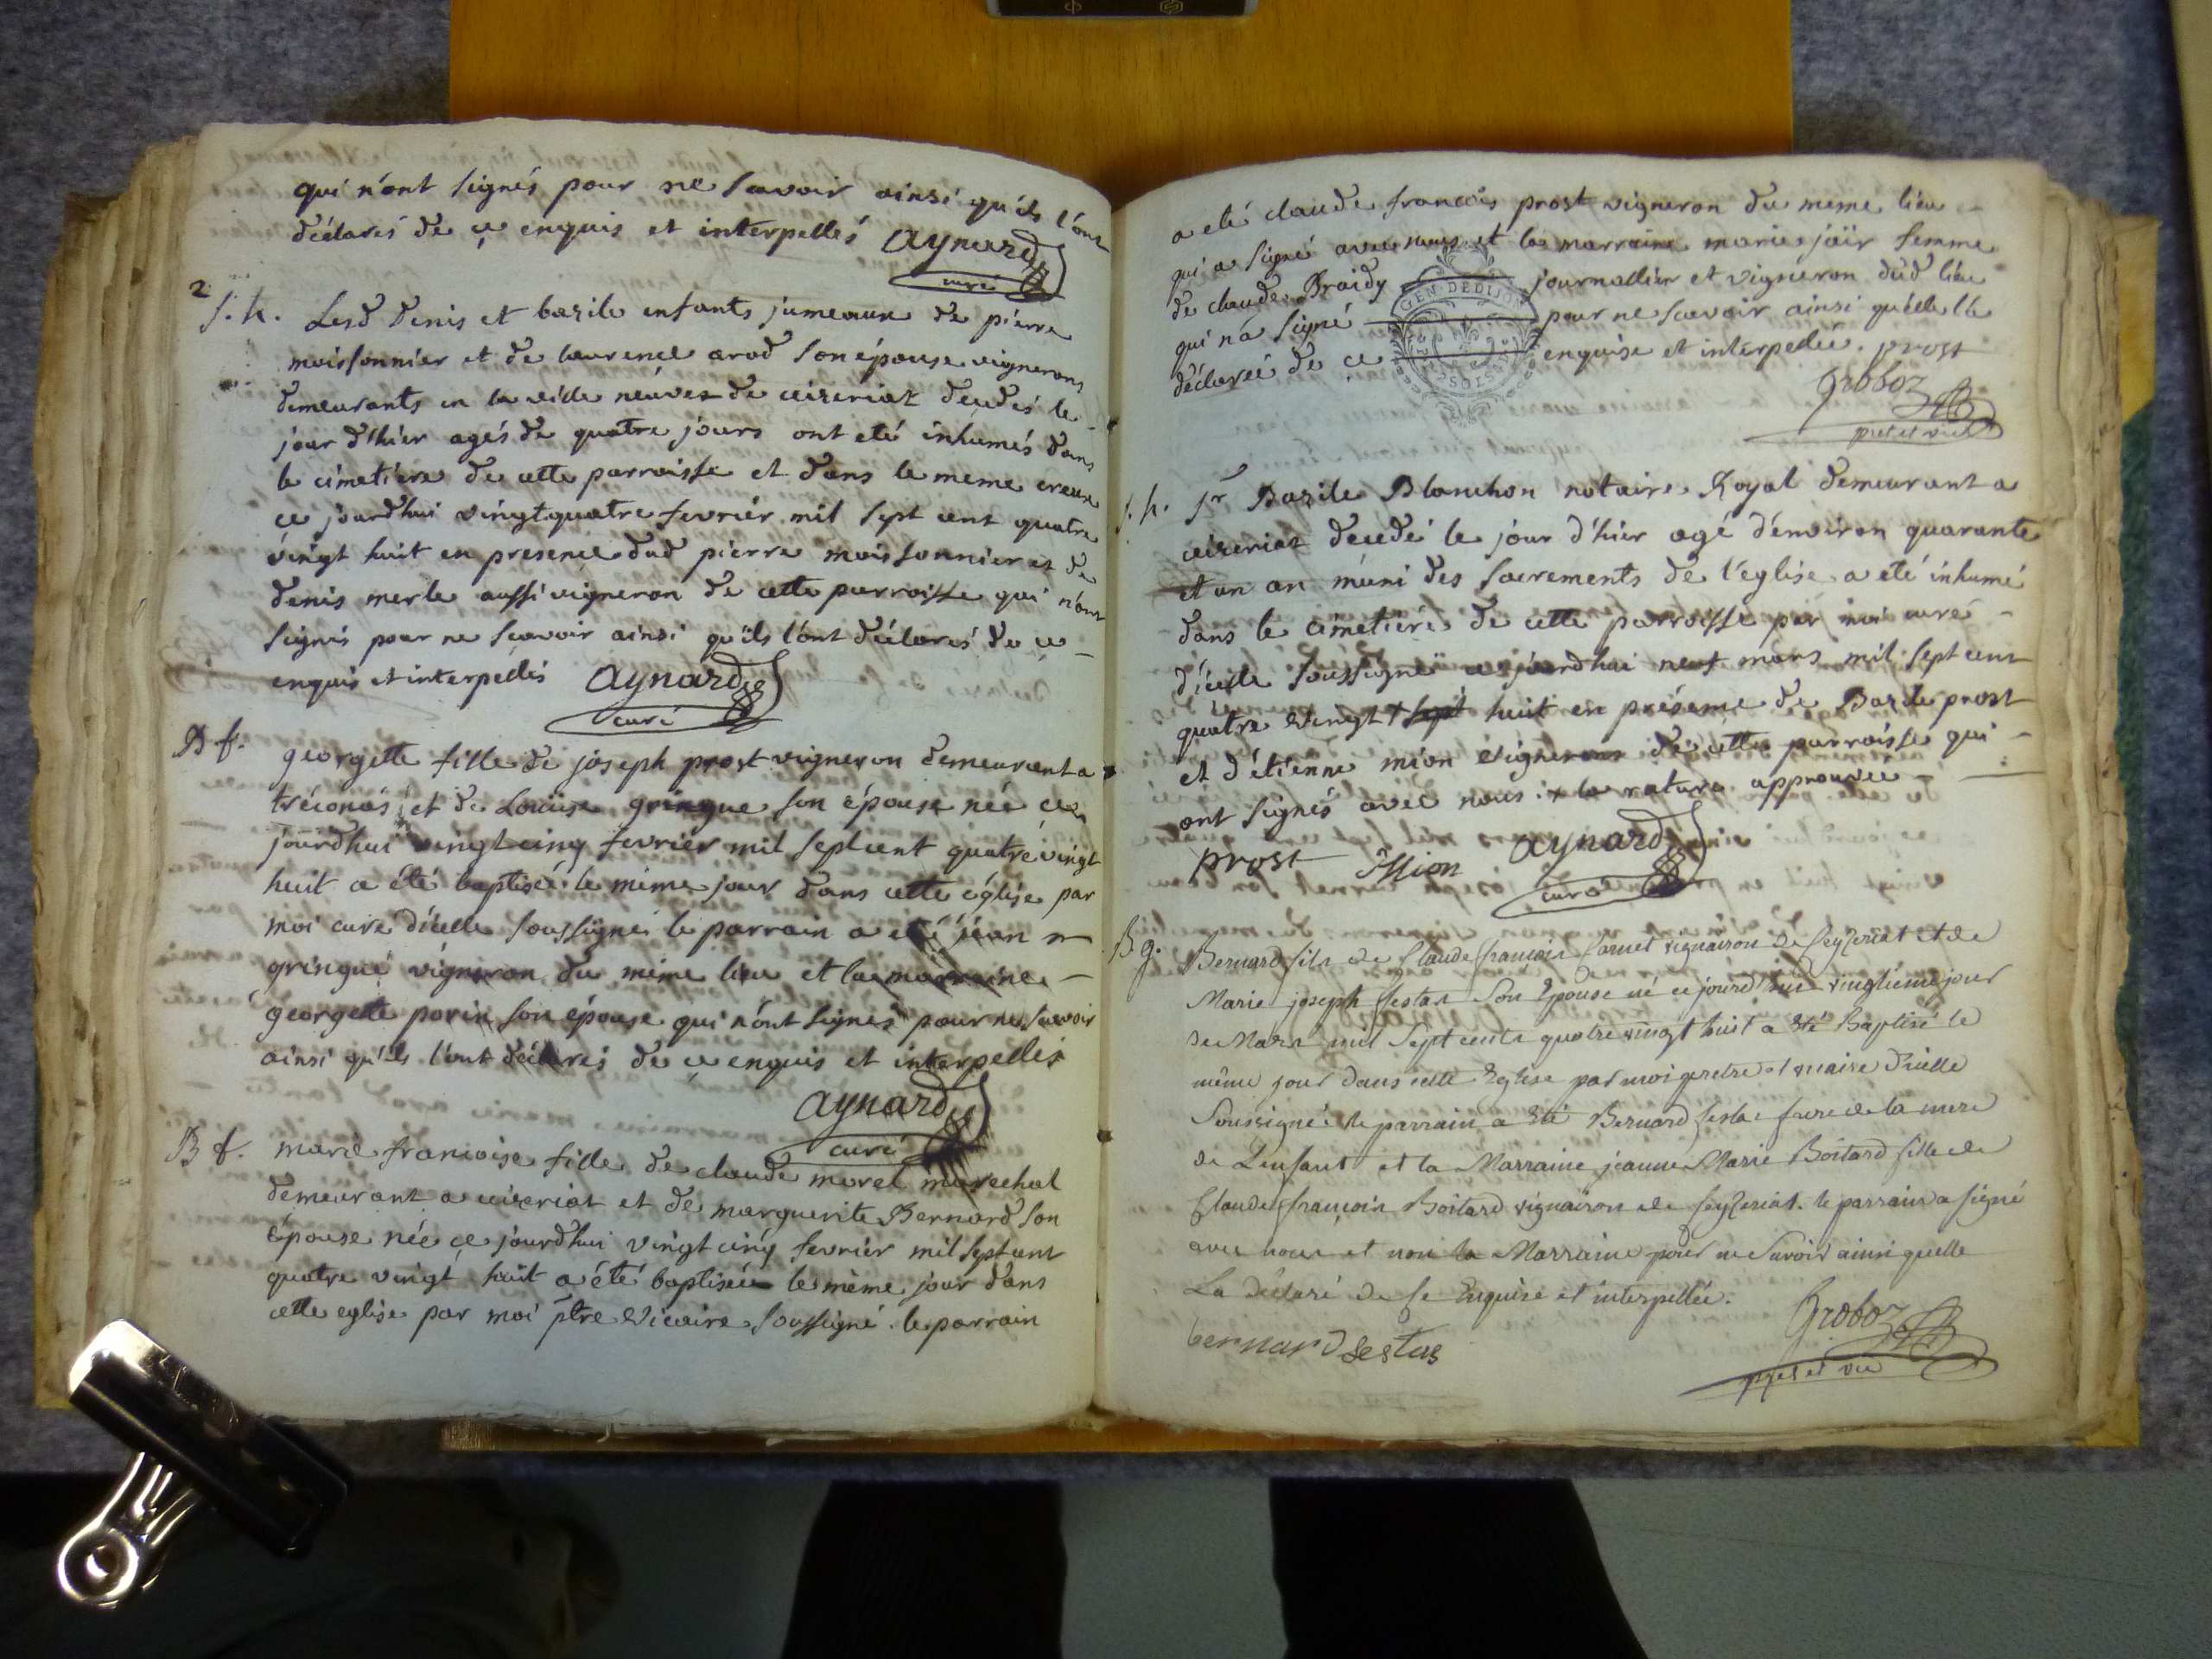 qui n'ont signés pour ne scavoir ainsi qu'ils l'ont
déclarés de ce enquis et interpellés aynard
curé
2
s. h. Lesd denis et bazile enfants jumeaux de pierre
moissonnier et de laurence arod son épouse vignerons
demeurants en la ville neuve de ceizeriat décedés le
jour d'hier agés de quatre jours ont eté inhumés dans
le cimetiére de cette parroisse et dans le meme creux
ce jourdhui vingtquatre fevriér mil sept cent quatre
vingt huit en presence dud pierre moissonnier et de
denis merle aussi vigneron de cette parroisse qui n'ont
signés pour ne scavoir ainsi qu'ils l'ont déclarés de ce
enquis et interpellés aynard
curé
B f. georgette fille de joseph prost vigneron demeurant a
tréconas et de Louise gringue son épouse née ce
jourdhui vingt cinq fevriér mil sept cent quatre vingt
huit a été baptisée le méme jour dans cette église par
moi curé d'icelle soussigné le parrain a eté jean
gringue vigneron du méme lieu et la marraine
georgette porin son épouse qui n'ont signés pour ne scavoir
ainsi qu'ils l'ont déclarés de ce enquis et interpellés
aynard
curé
B f. marie francoise fille de claude morel marechal
demeurant a ceizeriat et de marguerite Bernard son
épouse née ce jourdhui vingt cinq fevriér mil sept cent
quatre vingt huit a été baptisée le méme jour dans
cette eglise par moi ptre Vicaire soussigné. le parrain
a eté claude francois prost vigneron du méme lieu
qui a signé avec nous et la marraine marie jaïr femme
de claude Braidy journallier et vigneron dud lieu
qui n'a signé pour ne scavoir ainsi qu'elle l'a
déclareé de ce enquise et interpellée. prost
GEN DE DIJON
Groboz
pret et vic
s. h. Sr Bazile Blanchon notaire Royal demeurant a
ceizeriat décedé le jour d'hier agé d'environ quarante
et un an muni des sacrements de l'eglise a eté inhumé
dans le cimetiére de cette parroisse par moi curé
d'icelle soussigné ce jourdhui neuf mars mil sept cent
quatre vingt + sept huit en présence de Bazile prost
et d'étienne mion Vignerons de cette parroisse qui
ont signés avec nous: + la rature approuvée
prost Mion aynard
curé
B g. Bernard fils de Claude françois Cornet vignairon de Ceyzeriat et de
Marie joseph Sestas Son Epouse né ce jourd'hui vingtieme jour
de Mars mil Sept cents quatre vingt huit a été Baptisé le
même jour dans cette Eglise par moi pretre et vicaire d'icelle
Soussigné: le parrain a été Bernard Sestas frere de la mere
de L'enfant et la Marraine jeanne Marie Boitard fille de
Claude françois Boitard vignairon de Ceyzeriat. le parrain a signé
avec nous et non la Marraine pour ne Savoir ainsi quelle
La déclaré de Ce Enquise et interpellée.
bernard Sestas Groboz
pret et vic